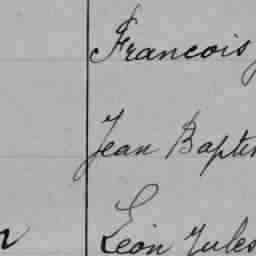 Francois
Jean Bapti
Léon Jules